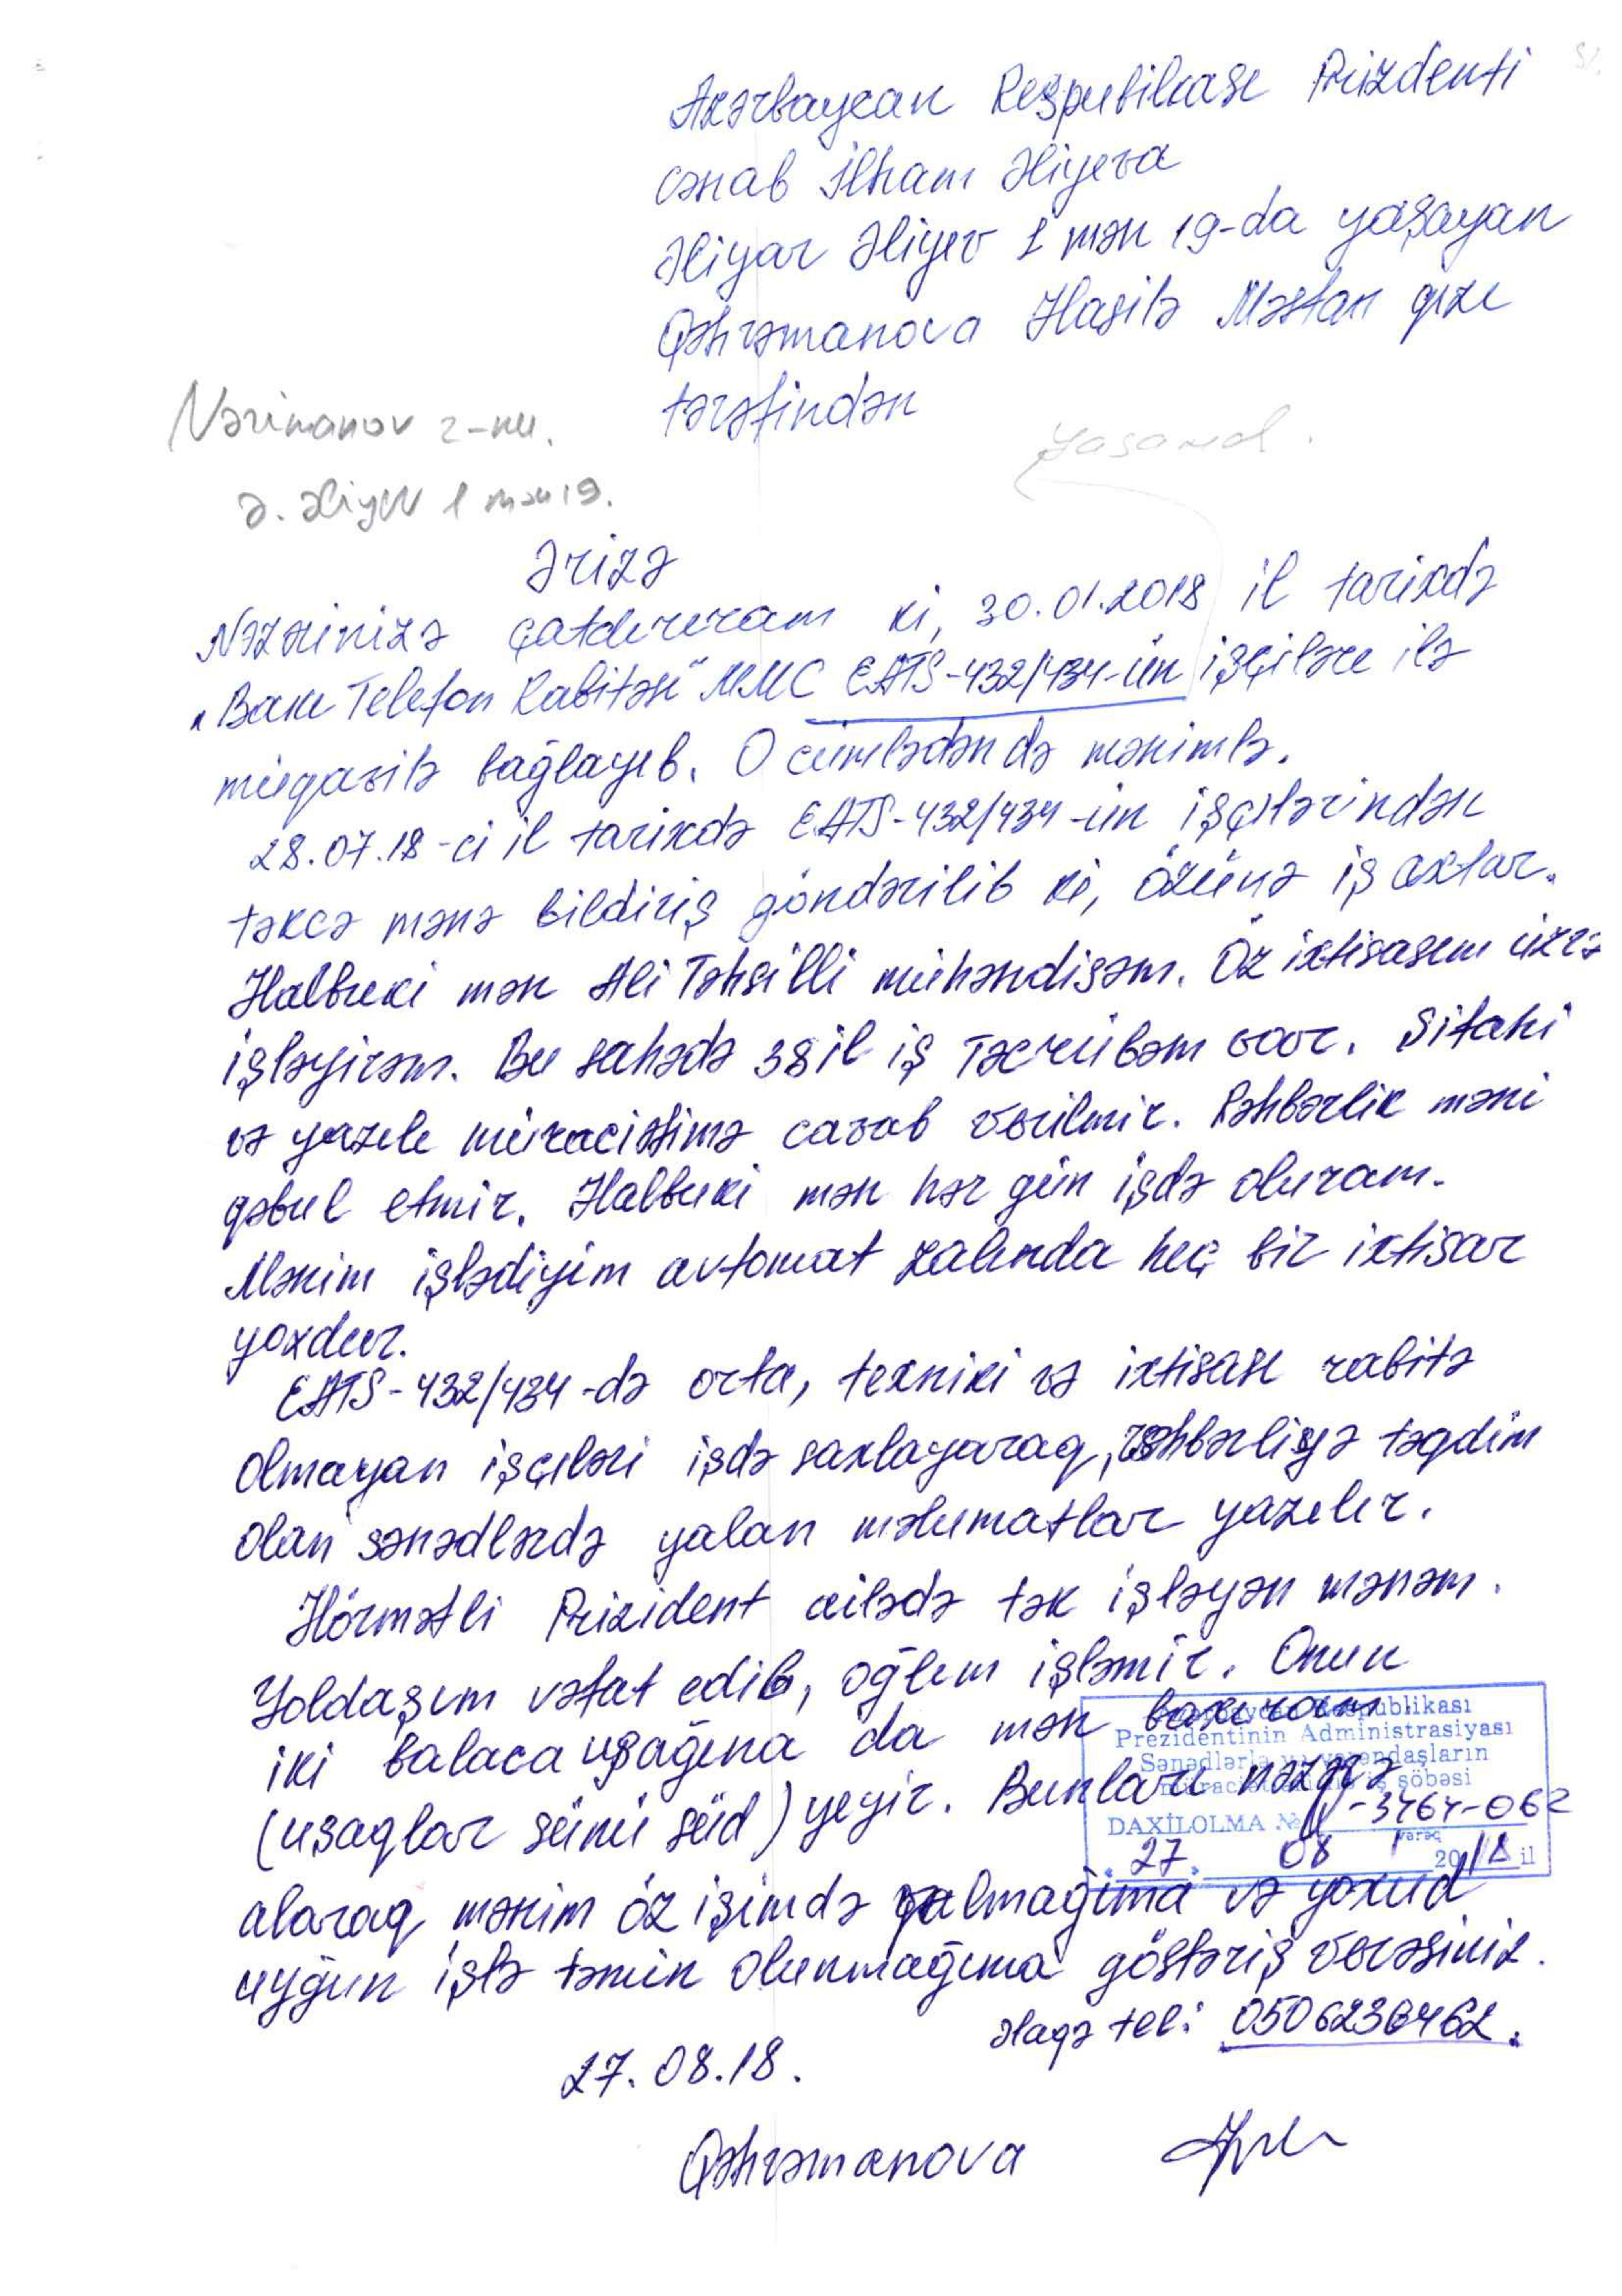 Azərbaycan Respublikası Prizdenti
cənab İlham Əliyevə
Əliyar Əliyev 1 mən 19-da yaşayan
Qəhrəmanova Həsilə Məstan qızı
tərəfindən
Nərimanov r-nu.
Ə. Əliyev 1 mən 19.
Ərizə
Nəzərinizə çatdırıram ki, 30.01.2018 il tarixdə
"Bakı Telefon Rabitəsi" MMC EATS-432/434-ün işçiləri ilə
müqavilə bağlayıb. O cümlədən də mənimlə.
28.07.18-ci il tarixdə EATS-432/434-ün işçilərindən
təkcə mənə bildiriş göndərilib ki, özünə iş axtar.
Halbuki mən Ali Təhsilli mühəndisəm. Öz ixtisasım üzrə
işləyirəm. Bu sahədə 38 il iş Təcrübəm var. Şifahi
və yazılı müraciətimə cavab verilmir. Rəhbərlik məni
qəbul etmir. Halbuki mən hər gün işdə oluram.
Mənim işlədiyim avtomat zalında heç bir ixtisar
yoxdur.
EATS-432/434-də orta, texniki və ixtisası rabitə
olmayan işçiləri işdə saxlayaraq, rəhbərliyə təqdim
olan sənədlərdə yalan məlumatlar yazılır.
Hörmətli Prizident ailədə tək işləyən mənəm.
Yoldaşım vəfat edib, oğlum işləmir. Onun
iki balaca uşağına da mən baxıram
(uşaqlar sünü süd) yeyir. Bunları nəzərə
alaraq mənim öz işimdə qalmağıma və yaxud
uyğun işlə təmin olunmağıma göstəriş verəsiniz.
Azərbaycan Respublikası
Prezidentinin Administrasiyası
Sənədlərlə və vətəndaşların
müraciətləri ilə iş şöbəsi
DAXİLOLMA № -3464-062
vərəq
"27" 08 2018 il
Əlaqə tel: 0506236462.
27.08.18.
Qəhrəmanova